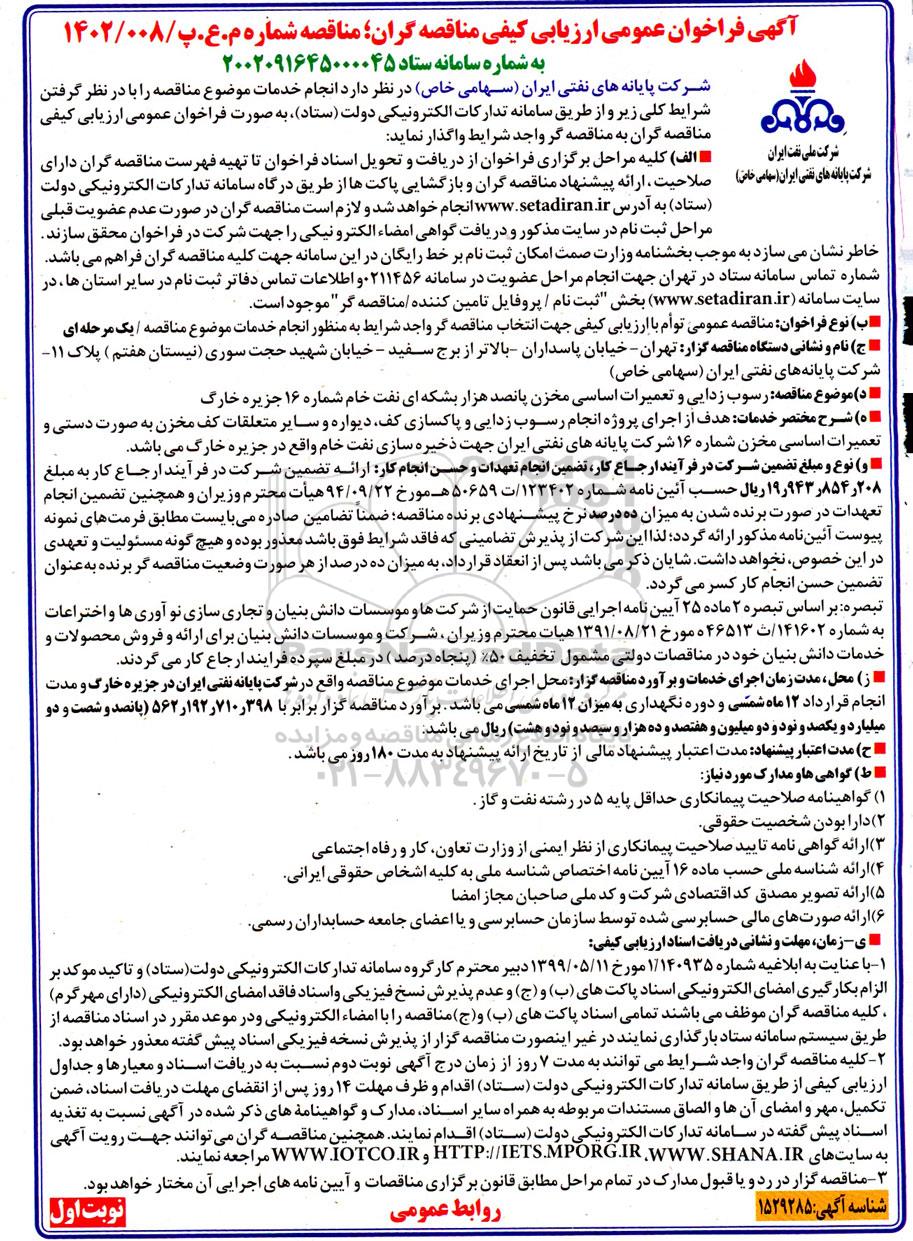 آگهی فراخوان عمومی ارزیابی کیفی مناقصه گران؛ مناقصه شماره م.ع.پ/۱۴۰۲/۰۰۸
به شماره سامانه ستاد ۲۰۰۲۰۹۱۶۴۵۰۰۰۰۴۵
شرکت ملی نفت ایران
شرکت پایانه های نفتی ایران (سهامی خاص)
شرکت پایانه های نفتی ایران (سهامی خاص) در نظر دارد انجام خدمات موضوع مناقصه را با در نظر گرفتن
شرایط کلی زیر و از طریق سامانه تدارکات الکترونیکی دولت (ستاد)، به صورت فراخوان عمومی ارزیابی کیفی
مناقصه گران به مناقصه گر واجد شرایط واگذار نماید:
الف) کلیه مراحل برگزاری فراخوان از دریافت و تحویل اسناد فراخوان تا تهیه فهرست مناقصه گران دارای
صلاحیت، ارائه پیشنهاد مناقصه گران و بازگشایی پاکت ها از طریق درگاه سامانه تدارکات الکترونیکی دولت
(ستاد) به آدرس www.setadiran.ir انجام خواهد شد و لازم است مناقصه گران در صورت عدم عضویت قبلی
مراحل ثبت نام در سایت مذکور و دریافت گواهی امضاء الکترونیکی را جهت شرکت در فراخوان محقق سازند.
خاطر نشان می سازد به موجب بخشنامه وزارت صمت امکان ثبت نام بر خط رایگان در این سامانه جهت کلیه مناقصه گران فراهم می باشد.
شماره تماس سامانه ستاد در تهران جهت انجام مراحل عضویت در سامانه ۰۲۱۱۴۵۶ و اطلاعات تماس دفاتر ثبت نام در سایر استان ها، در
سایت سامانه (www.setadiran.ir) بخش "ثبت نام / پروفایل تامین کننده/مناقصه گر" موجود است.
ب) نوع فراخوان: مناقصه عمومی توأم با ارزیابی کیفی جهت انتخاب مناقصه گر واجد شرایط به منظور انجام خدمات موضوع مناقصه / یک مرحله ای
ج) نام و نشانی دستگاه مناقصه گزار: تهران - خیابان پاسداران - بالاتر از برج سفید - خیابان شهید حجت سوری (نیستان هفتم) پلاک ۱۱-
شرکت پایانه‌های نفتی ایران (سهامی خاص)
د) موضوع مناقصه: رسوب زدایی و تعمیرات اساسی مخزن پانصد هزار بشکه ای نفت خام شماره ۱۶ جزیره خارگ
ه) شرح مختصر خدمات: هدف از اجرای پروژه انجام رسوب زدایی و پاکسازی کف، دیواره و سایر متعلقات کف مخزن به صورت دستی و
تعمیرات اساسی مخزن شماره ۱۶ شرکت پایانه های نفتی ایران جهت ذخیره سازی نفت خام واقع در جزیره خارگ می باشد.
و) نوع و مبلغ تضمین شرکت در فرآیند ارجاع کار، تضمین انجام تعهدات و حسن انجام کار: ارائه تضمین شرکت در فرآیند ارجاع کار به مبلغ
۱۹٫۹۴۳٫۸۵۴٫۲۰۸ ریال حسب آئین نامه شماره ۱۲۳۴۰۲/ت ۵۰۶۵۹ هـ مورخ ۹۴/۰۹/۲۲ هیأت محترم وزیران و همچنین تضمین انجام
تعهدات در صورت برنده شدن به میزان ده درصد نرخ پیشنهادی برنده مناقصه؛ ضمناً تضامین صادره می‌بایست مطابق فرمت‌های نمونه
پیوست آئین‌نامه مذکور ارائه گردد؛ لذا این شرکت از پذیرش تضامینی که فاقد شرایط فوق باشد معذور بوده و هیچ گونه مسئولیت و تعهدی
در این خصوص، نخواهد داشت. شایان ذکر می باشد پس از انعقاد قرارداد، به میزان ده درصد از هر صورت وضعیت مناقصه گر برنده به عنوان
تضمین حسن انجام کار کسر می گردد.
تبصره: بر اساس تبصره ۲ ماده ۲۵ آیین نامه اجرایی قانون حمایت از شرکت ها و موسسات دانش بنیان و تجاری سازی نو آوری ها و اختراعات
به شماره ۱۴۱۶۰۲/ت ۴۶۵۱۳ ه مورخ ۱۳۹۱/۰۸/۲۱ هیات محترم وزیران، شرکت و موسسات دانش بنیان برای ارائه و فروش محصولات و
خدمات دانش بنیان خود در مناقصات دولتی مشمول تخفیف ۵۰٪ (پنجاه درصد) در مبلغ سپرده فرایند ارجاع کار می گردند.
ز) محل، مدت زمان اجرای خدمات و برآورد مناقصه گزار: محل اجرای خدمات موضوع مناقصه واقع در شرکت پایانه نفتی ایران در جزیره خارگ و مدت
انجام قرارداد ۱۲ ماه شمسی و دوره نگهداری به میزان ۱۲ ماه شمسی می باشد. برآورد مناقصه گزار برابر با ۵۶۲٫۱۹۲٫۷۱۰٫۳۹۸ (پانصد و شصت و دو
میلیارد و یکصد و نود و دو میلیون و هفتصد و ده هزار و سیصد و نود و هشت) ریال می باشد.
ح) مدت اعتبار پیشنهاد: مدت اعتبار پیشنهاد مالی از تاریخ ارائه پیشنهاد به مدت ۱۸۰ روز می باشد.
ط) گواهی ها و مدارک مورد نیاز:
۱) گواهینامه صلاحیت پیمانکاری حداقل پایه ۵ در رشته نفت و گاز.
۲) دارا بودن شخصیت حقوقی.
۳) ارائه گواهی نامه تایید صلاحیت پیمانکاری از نظر ایمنی از وزارت تعاون، کار و رفاه اجتماعی
۴) ارائه شناسه ملی حسب ماده ۱۶ آیین نامه اختصاص شناسه ملی به کلیه اشخاص حقوقی ایرانی.
۵) ارائه تصویر مصدق کد اقتصادی شرکت و کد ملی صاحبان مجاز امضا
۶) ارائه صورت‌های مالی حسابرسی شده توسط سازمان حسابرسی و یا اعضای جامعه حسابداران رسمی.
ی- زمان، مهلت و نشانی دریافت اسناد ارزیابی کیفی:
۱- با عنایت به ابلاغیه شماره ۱/۱۴۰۹۳۵ مورخ ۱۳۹۹/۰۵/۱۱ دبیر محترم کارگروه سامانه تدارکات الکترونیکی دولت (ستاد) و تاکید موکد بر
الزام بکارگیری امضای الکترونیکی اسناد پاکت های (ب) و (ج) و عدم پذیرش نسخ فیزیکی و اسناد فاقد امضای الکترونیکی (دارای مهر گرم)
، کلیه مناقصه گران موظف می باشند تمامی اسناد پاکت های (ب) و (ج) مناقصه را با امضاء الکترونیکی ودر موعد مقرر در اسناد مناقصه از
طریق سیستم سامانه ستاد بارگذاری نمایند در غیر اینصورت مناقصه گزار از پذیرش نسخه فیزیکی اسناد پیش گفته معذور خواهد بود.
۲- کلیه مناقصه گران واجد شرایط می توانند به مدت ۷ روز از زمان درج آگهی نوبت دوم نسبت به دریافت اسناد و معیارها و جداول
ارزیابی کیفی از طریق سامانه تدارکات الکترونیکی دولت (ستاد) اقدام و ظرف مهلت ۱۴ روز پس از انقضای مهلت دریافت اسناد، ضمن
تکمیل، مهر و امضای آن ها و الصاق مستندات مربوطه به همراه سایر اسناد، مدارک و گواهینامۀ های ذکر شده در آگهی نسبت به تغذیه
اسناد پیش گفته در سامانه تدارکات الکترونیکی دولت (ستاد) اقدام نمایند. همچنین مناقصه گران می‌توانند جهت رویت آگهی
به سایت‌های HTTP://IETS.MPORG.IR ،WWW.SHANA.IR و WWW.IOTCO.IR مراجعه نمایند.
۳- مناقصه گزار در رد و یا قبول مدارک در تمام مراحل مطابق قانون برگزاری مناقصات و آیین نامه های اجرایی آن مختار خواهد بود.
شناسه آگهی: ۱۵۲۹۲۸۵
روابط عمومی
نوبت اول
ParsNamadData
۰۲۱-۸۸۳۴۹۶۷۰-۵